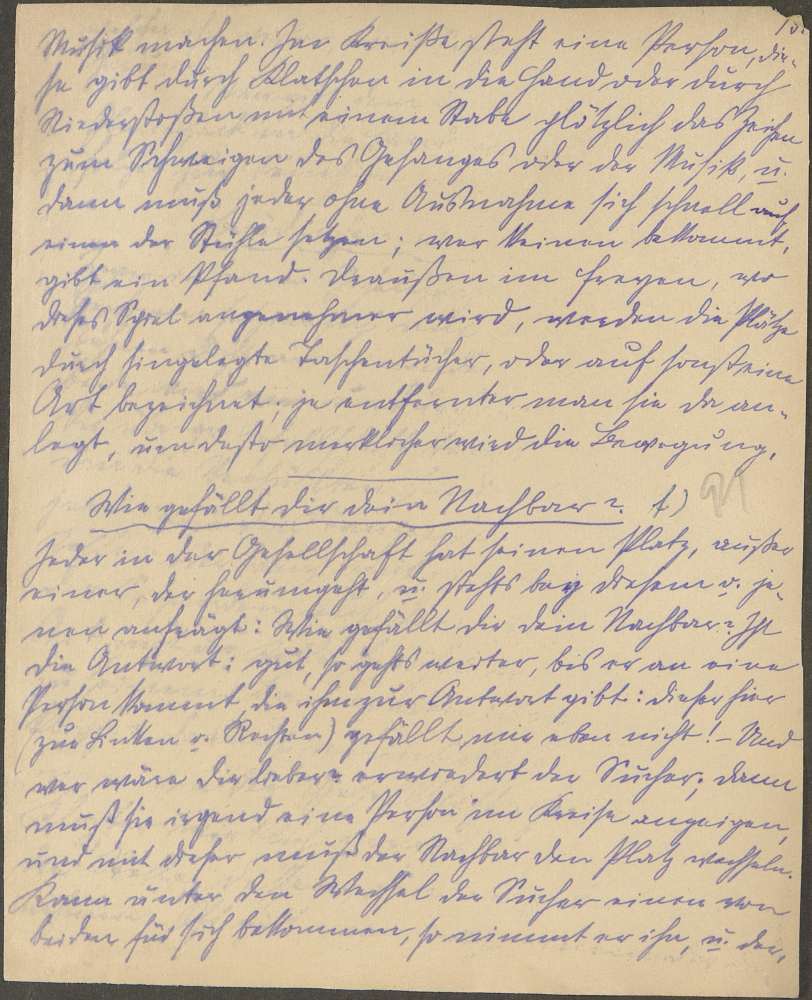 13.
Musik machen. Im Kreiße steht eine Person, die-
se gibt durch Klatschen in die Hand oder durch
Niederstoßen mit einem Stabe plötzlich das Zeichen
zum Schweigen des Gesanges oder der Musik, u.
dann muß jeder ohne Ausnahme sich schnell auf
einen der Stühle setzen; wer keinen bekommt,
gibt ein Pfand. Draußen im Freyen, wo
dieses Spiel angenehmer wird, werden die Plätze
durch hingelegte Taschentücher, oder auf sonst eine
Art bezeichnet; je entfernter man sie da an-
legt, um desto merklicher wird die Bewegung.
Wie gefällt dir dein Nachbar? †) 91
Jeder in der Gesellschaft hat seinen Platz, außer
einer, der herumgeht, u. stehts bey diesem o. je-
nen anfrägt: Wie gefällt dir dein Nachbar? Ist
die Antwort: gut, so gehts weiter, bis er an eine
Person kommt, die ihm zur Antwort gibt: dieser hier
(zur Linken o. Rechten) gefällt mir eben nicht! – Und
wer wäre dir lieber? erwiedert der Sucher; dann
muß sie irgend eine Person im Kreise anzeigen,
und mit dieser muß der Nachbar den Platz wechseln.
Kann unter dem Wechsel der Sucher einen von
beiden für sich bekommen, so nimmt er ihn, u. der,